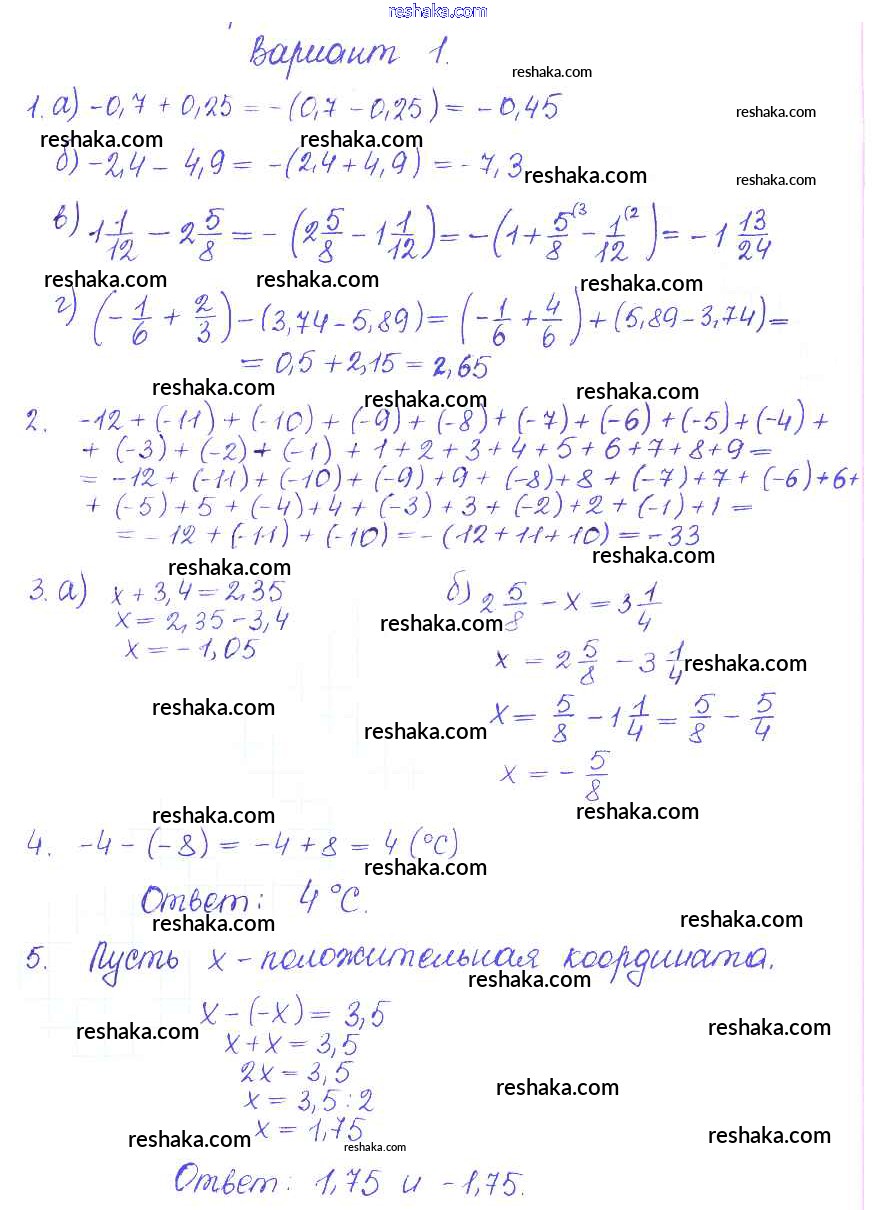 reshaka.com
Вариант 1.
reshaka.com
1. а) -0,7 + 0,25 = -(0,7 - 0,25) = -0,45
reshaka.com
reshaka.com reshaka.com
б) -2,4 - 4,9 = -(2,4 + 4,9) = -7,3
reshaka.com reshaka.com
в) 1 1/12 - 2 5/8 = -(2 5/8 - 1 1/12) = -(1 + 5/8 (3 - 1/12 (2) = -1 13/24
reshaka.com reshaka.com reshaka.com
г) (-1/6 + 2/3) - (3,74 - 5,89) = (-1/6 + 4/6) + (5,89 - 3,74) =
= 0,5 + 2,15 = 2,65
reshaka.com reshaka.com reshaka.com
2. -12 + (-11) + (-10) + (-9) + (-8) + (-7) + (-6) + (-5) + (-4) +
+ (-3) + (-2) + (-1) + 1 + 2 + 3 + 4 + 5 + 6 + 7 + 8 + 9 =
= -12 + (-11) + (-10) + (-9) + 9 + (-8) + 8 + (-7) + 7 + (-6) + 6 +
+ (-5) + 5 + (-4) + 4 + (-3) + 3 + (-2) + 2 + (-1) + 1 =
= -12 + (-11) + (-10) = -(12 + 11 + 10) = -33
reshaka.com reshaka.com
3. а) x + 3,4 = 2,35
x = 2,35 - 3,4
x = -1,05
б) 2 5/8 - x = 3 1/4
reshaka.com
x = 2 5/8 - 3 1/4
reshaka.com
x = 5/8 - 1 1/4 = 5/8 - 5/4
reshaka.com reshaka.com
x = -5/8
reshaka.com reshaka.com
4. -4 - (-8) = -4 + 8 = 4 (°C)
reshaka.com
Ответ: 4 °C.
reshaka.com reshaka.com
5. Пусть x - положительная координата.
reshaka.com
x - (-x) = 3,5
reshaka.com reshaka.com
x + x = 3,5
2x = 3,5
reshaka.com
x = 3,5 : 2
x = 1,75
reshaka.com reshaka.com reshaka.com
Ответ: 1,75 и -1,75.